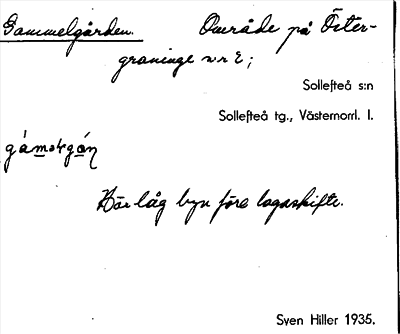 Gammelgården. Område på Öster-
graninge nr 2;
Sollefteå s:n
Sollefteå tg., Västernorrl. l.
Här låg byn före lagaskifte.
Sven Hiller 1935.